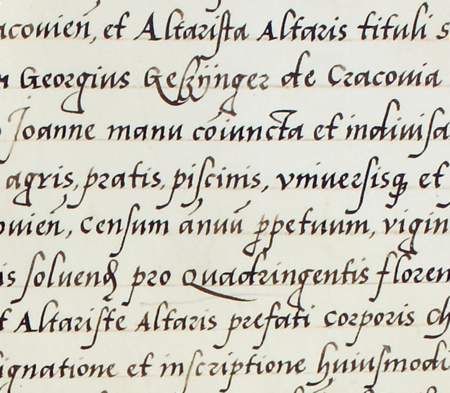 acouień, et Altarista Altaris tituli s
Georgius Gekzÿnger de Cracouia
Joanne manu cōiuncta et indiuisa
agris, pratis, piscinis, vniuersisqꝫ et
ouień, censum ānuū ꝑpetuum, vigin
is soluenđ pro Quadringentis floren
Altariste Altaris prefati corporis Ch
ignatione et inscriptione huiusmodi